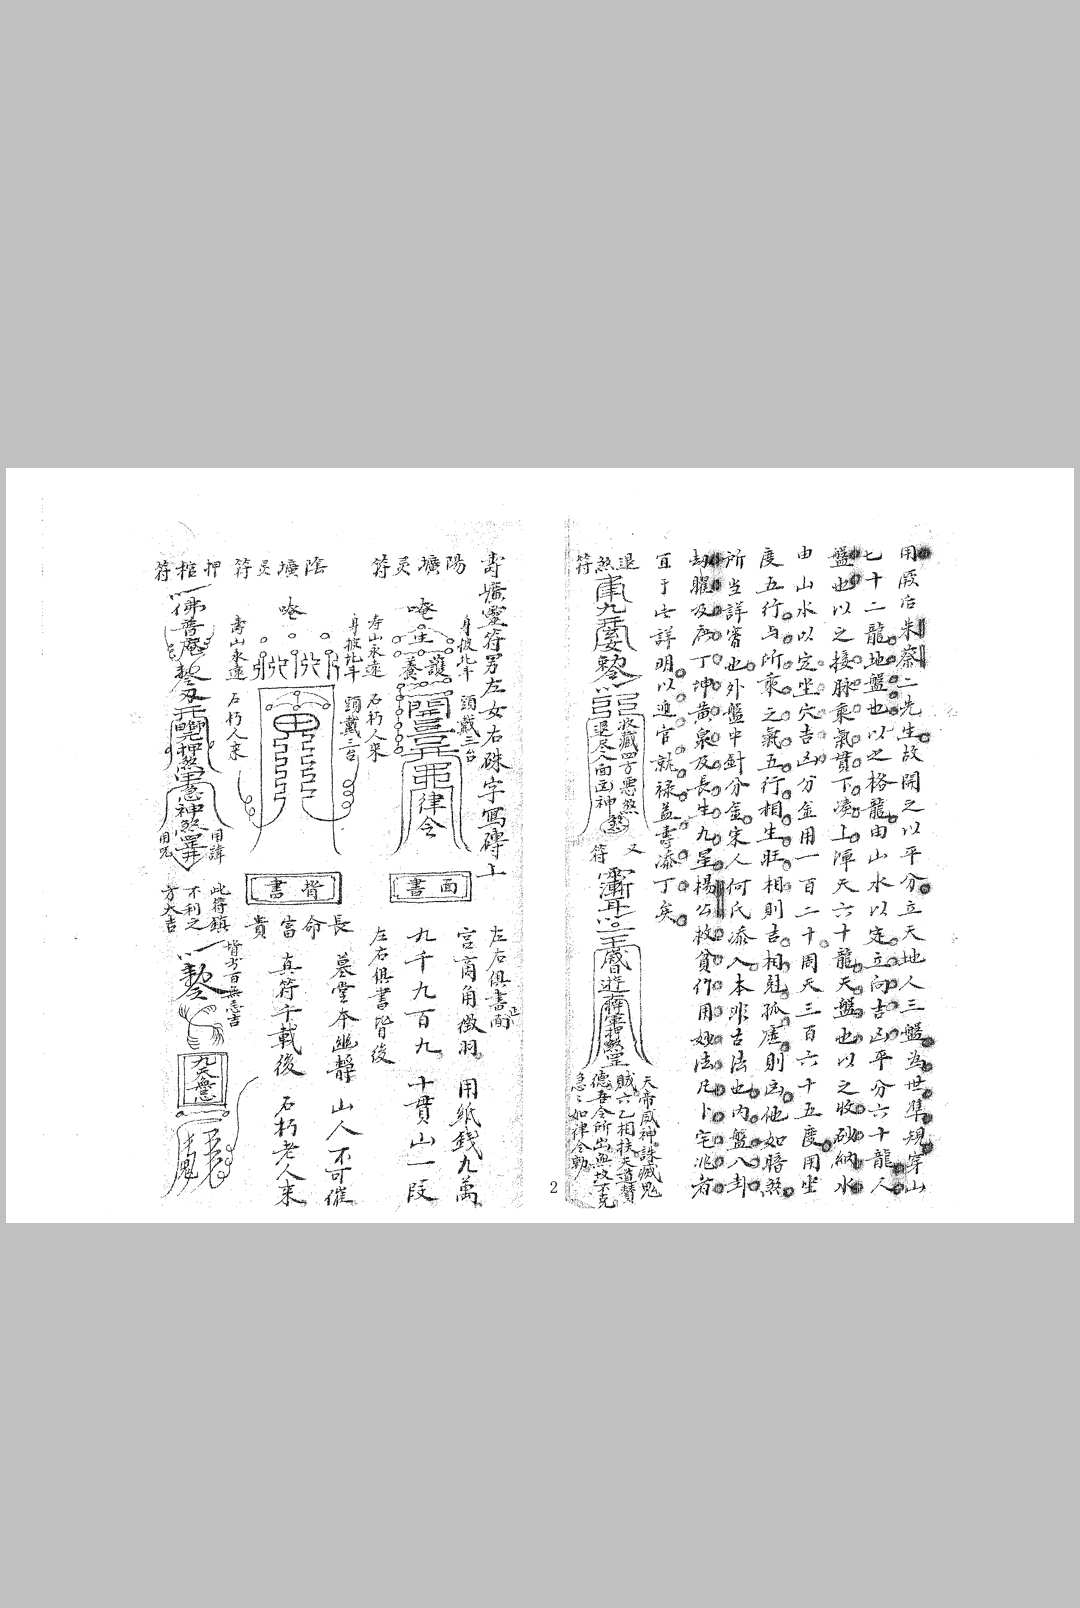 用厥后朱蔡二先生故開之以平分立天地人三盤為世準規穿山
七十二龍地盤也以之格龍由山水以定立向吉凶平分六十龍人
盤也以之接脉乘氣貫下湊上渾天六十龍天盤也以之收砂納水
由山水以定坐穴吉凶分金用一百二十周天三百六十五度用坐
度五行与所乘之氣五行相生旺相則吉相尅孤虛則凶他如賠煞
所当詳審也外盤中針分金宋人何氏添入本非古法也内盤八卦
劫曜及丙丁坤黄泉及長生九星楊公救貧作用妙法凡卜宅兆者
宜于此詳明以迎官就禄益壽添丁矣
退煞符
九
勅
收藏四方悪煞
退尽八面凶神
又符
遊
押煞
天帝風神誅滅鬼
賊六乙相扶天道賛
德吾令所出無攻不克
急急如律令勅
2
壽壙靈符男左女右硃字寫磚上
陽壙灵符
唵
身披北斗 頭戴三台
养護
開
律令
寿山永遠 石朽人來
面書
左右俱書面正
宮商角徴羽 用紙銭九萬
九千九百九 十貫山一段
左右俱書背後
陰壙灵符
唵
身披北斗 頭戴三台
壽山永遠 石朽人來
背書
長命富貴
墓堂本幽靜 山人不可催
真符千載後 石朽老人来
押棺符
佛普庵
押煞
神煞
用諱
用咒
此符鎮
不利之
方大吉
背書百無忌吉
勅令
九天
鬼